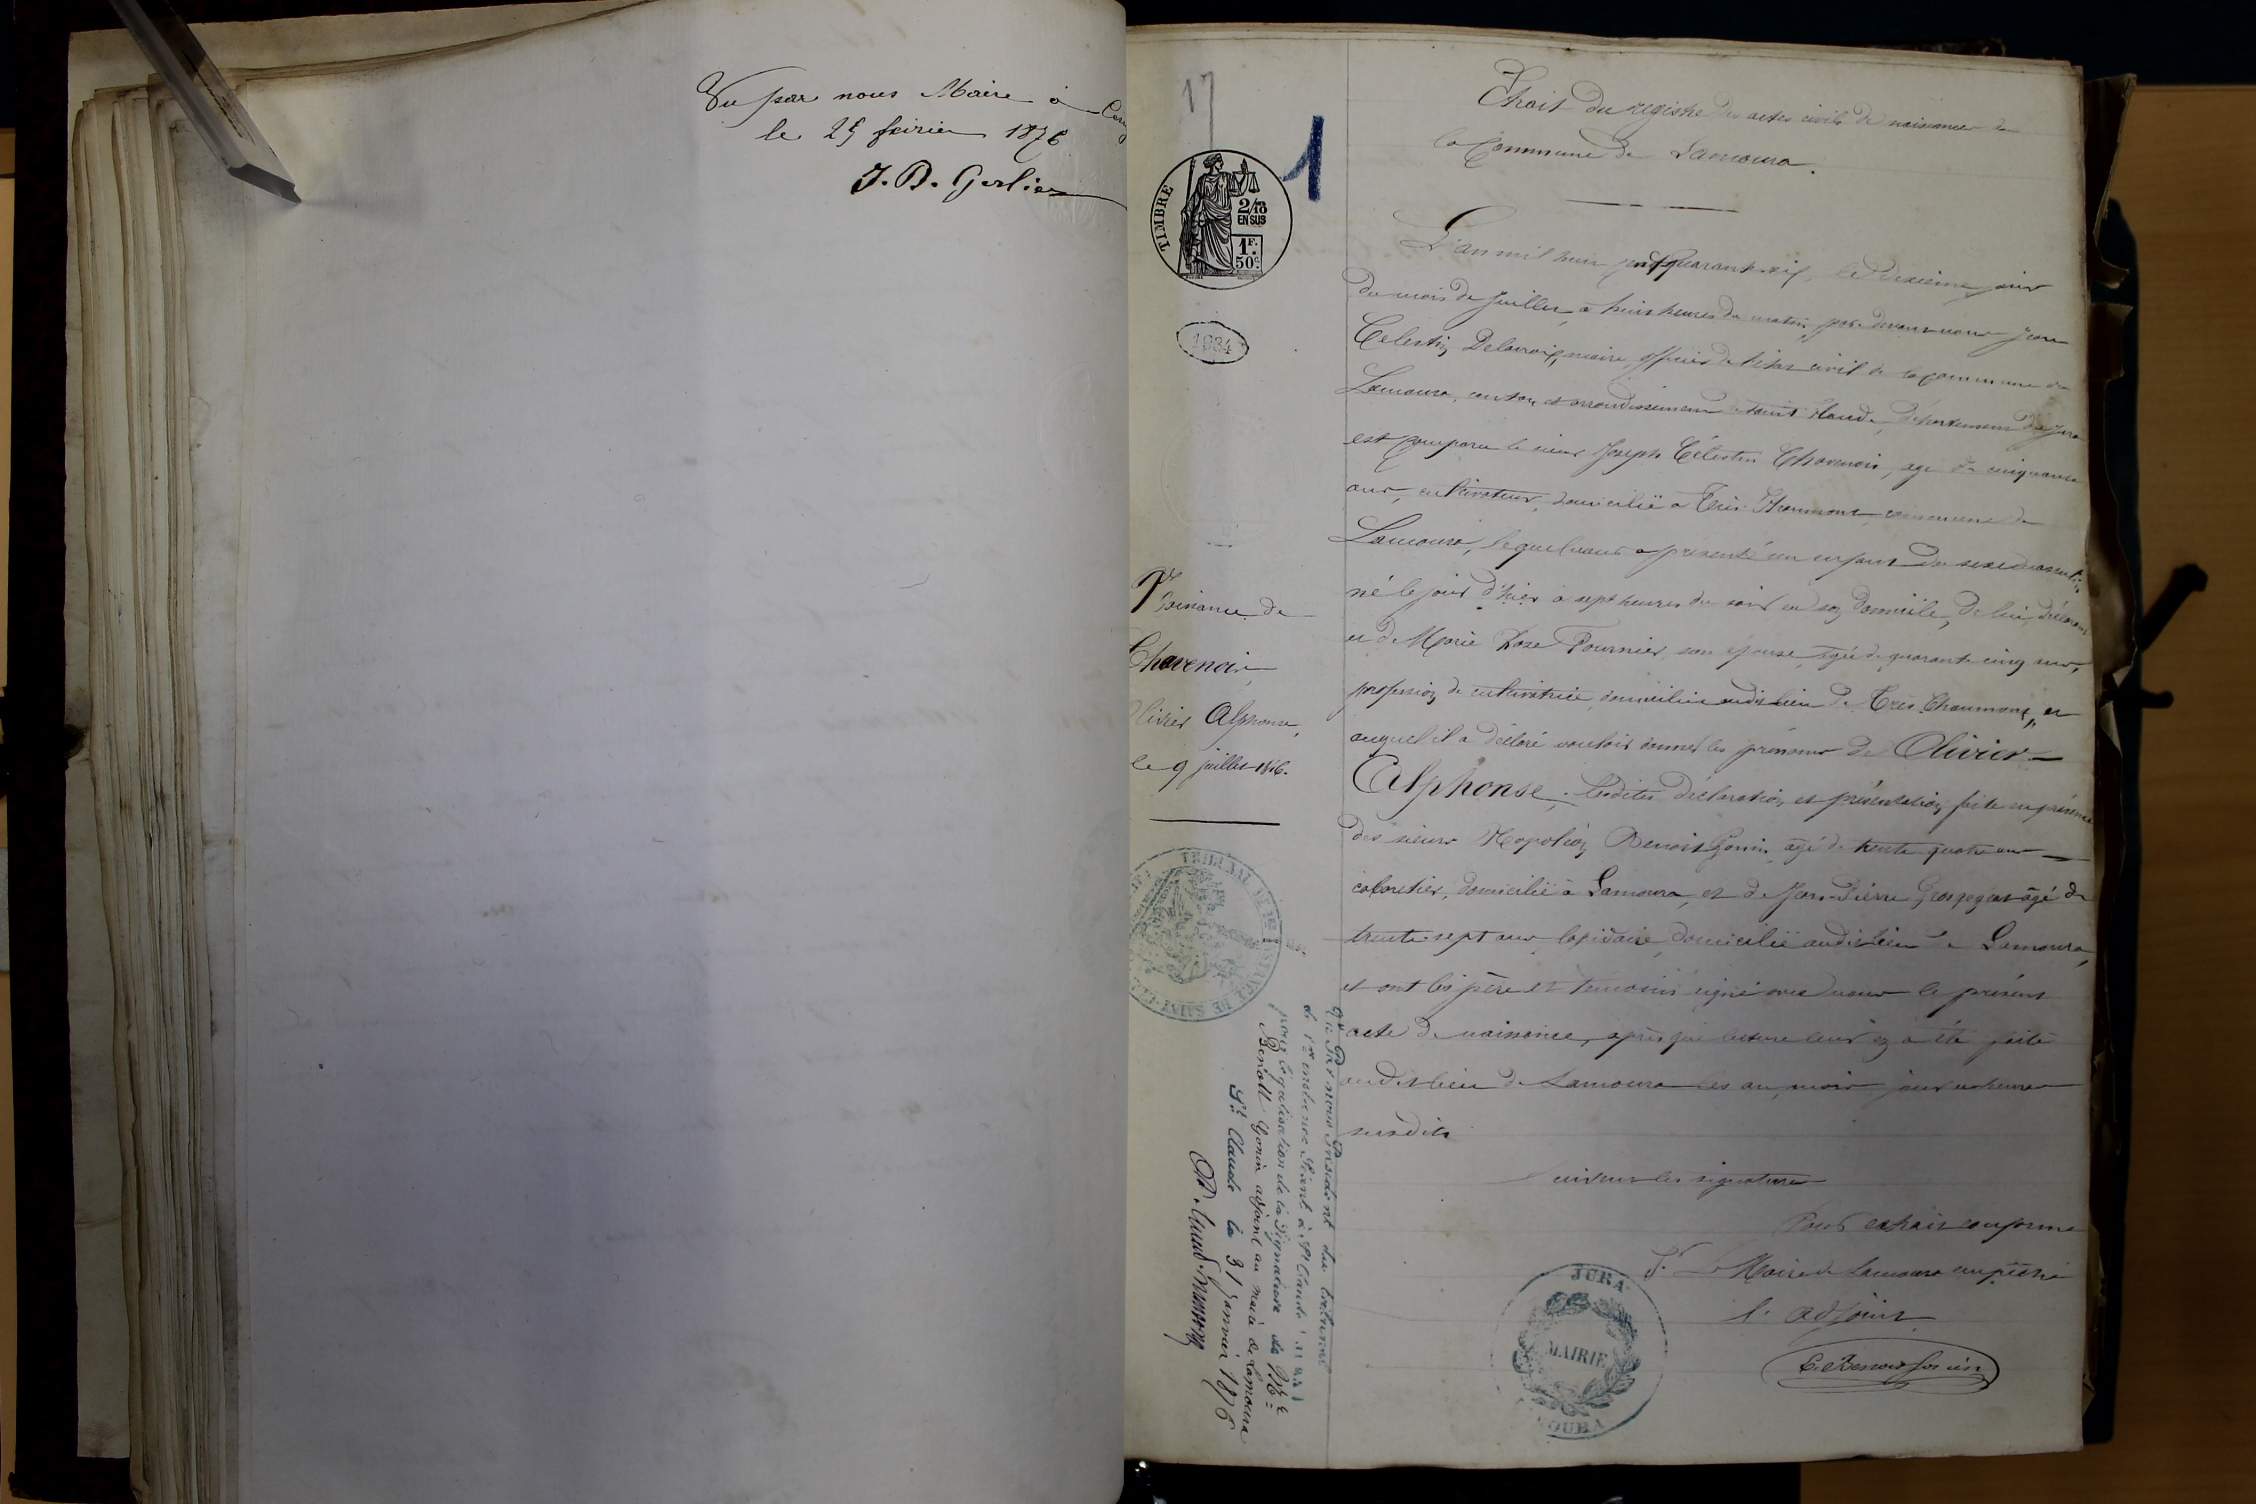 Vu par nous Maire à
le 25 février 1876
J. B. Gerlier
17
1
TIMBRE
2/10
EN SUS
1F.
50c.
1984
Naissance de
Chavenoir
Olivier Alphonse,
le 9 juillet 1846.
TRIBUNAL DE 1re INSTANCE DE SAINT-CLAUDE
Extrait du registre des actes civils de naissance de
la Commune de Lamoura.
L'an mil huit cent quarante six, le dixième jour
du mois de Juillet, à huit heures du matin, par devant nous Jean
Célestin Delacroix, maire, officier de l'état civil de la commune de
Lamoura, canton et arrondissement de saint Claude, département du Jura
est comparu le sieur Joseph Célestin Chavenoir, agé de cinquante
ans, cultivateur, domicilié à Très-Chaumont commune de
Lamoura, lequel nous a présenté un enfant du sexe masculin,
né le jour d'hier à sept heures du soir en son domicile, de lui déclarant
et de Marie Rose Fournier son épouse, agée de quarante cinq ans,
profession de cultivatrice, domiciliée audit lieu de Très-Chaumont, et
auquel il a déclaré vouloir donner les prénoms de Olivier
Alphonse. Lesdites déclaration et présentation faite en présence
des sieurs Napoléon Benoit Gonin, agé de trente quatre ans
cabaretier, domicilié à Lamoura, et de Jean-Pierre Grosgogeat agé de
trente-sept ans lapidaire, domicilié audit lieu de Lamoura,
et ont les père et témoins signé avec nous le présent
acte de naissance, après que lecture leur en a été faite
audit lieu de Lamoura les an, mois jour et heure
susdits
suivent les signatures
Pour extrait conforme
Pr. Le Maire de Lamoura empêché
l'adjoint
C. Benoit Gonin
JURA
MAIRIE
LAMOURA
Vu Par nous Président du tribunal
de 1re instance Séant à St Claude Jura
pour légalisation de la Signature de Mr
Benoit Gonin adjoint au maire de Lamoura
St Claude le 31 Janvier 1876